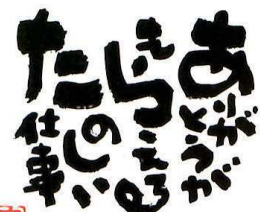 ありがとうが
もらえる
たのしい
仕事